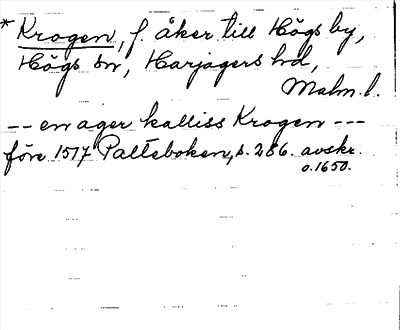 * Krogen, f. åker till Högs by,
Högs sn, Harjagers hd,
Malm. l.
-- en ager kalliss Krogen ---
före 1517 Palteboken, s. 286. avskr.
o. 1650.